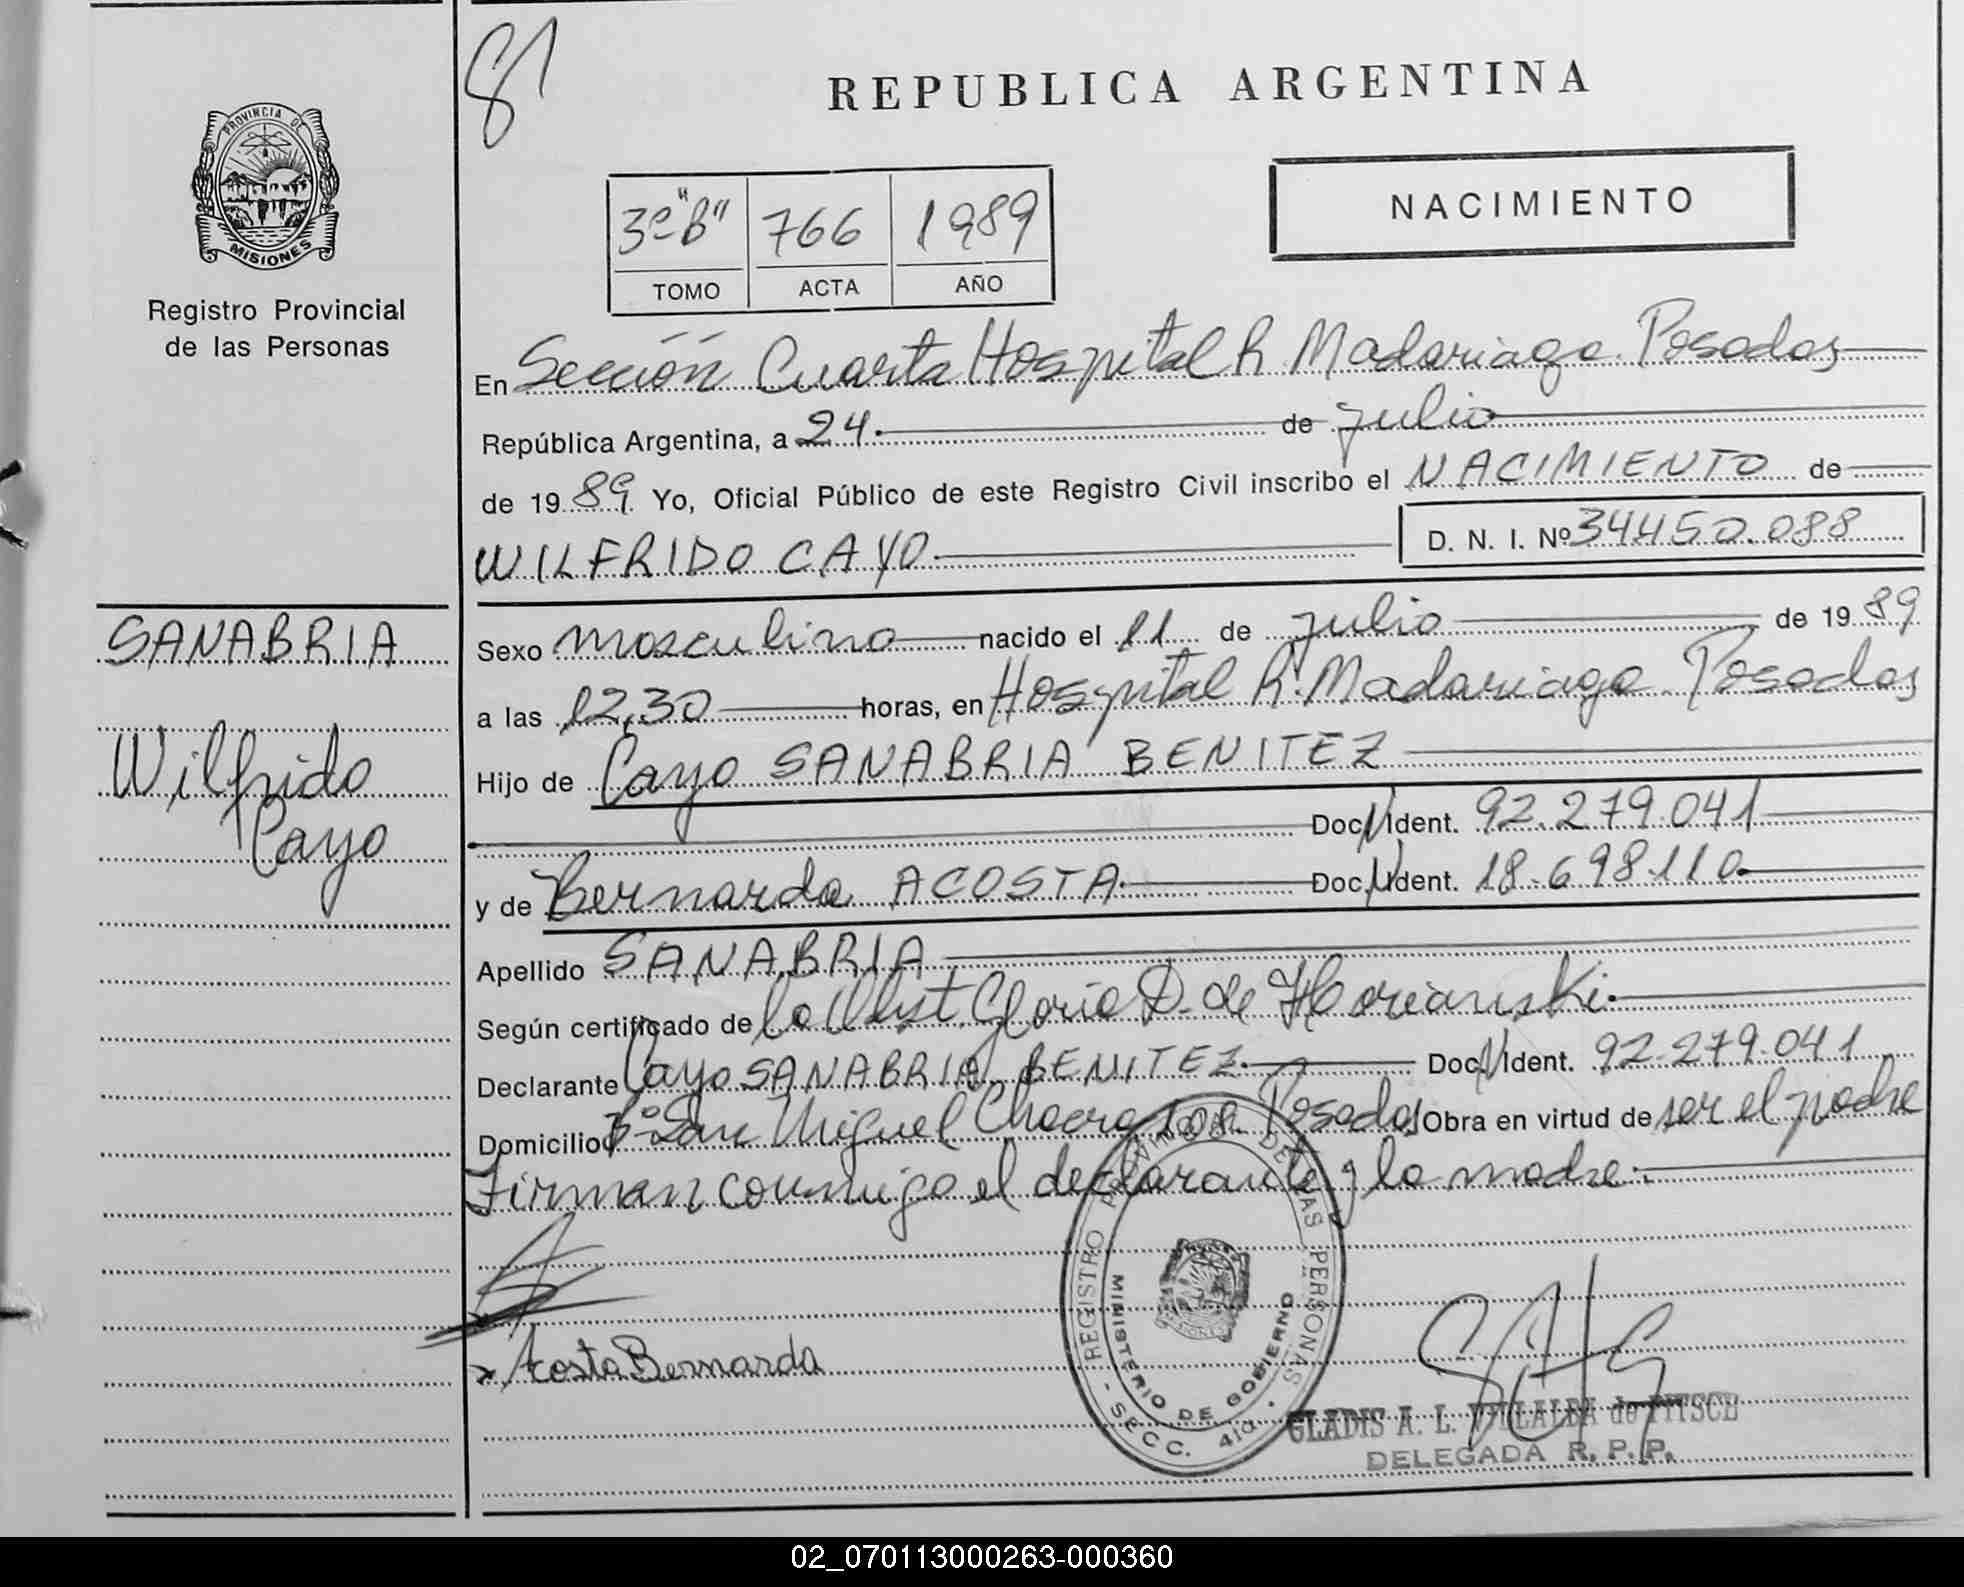 81
REPUBLICA ARGENTINA
PROVINCIA DE
MISIONES
Registro Provincial
de las Personas
3º "B" 766 1989
TOMO ACTA AÑO
NACIMIENTO
En Sección Cuarta Hospital R. Madariaga. Posadas
República Argentina, a 24. de julio
de 1989. Yo, Oficial Público de este Registro Civil inscribo el NACIMIENTO de
WILFRIDO CAYO
D. N. I. Nº 34.450.088
SANABRIA
Wilfrido
Cayo
Sexo masculino nacido el 11 de julio de 1989
a las 12,30 horas, en Hospital R. Madariaga. Posadas
Hijo de Cayo SANABRIA BENITEZ
Doc. N Ident. 92.279.041
y de Bernarda ACOSTA Doc. N Ident. 18.698.110
Apellido SANABRIA
Según certificado de la Obst. Gloria D. de
Declarante Cayo SANABRIA BENITEZ. Doc. N Ident. 92.279.041
Domicilio Bº San Miguel Chacra 108. Posadas Obra en virtud de ser el padre
Firman conmigo el declarante y la madre.
Acosta Bernarda
REGISTRO PROVINCIAL DE LAS PERSONAS
MINISTERIO DE GOBIERNO
- SECC. 4ta. -
GLADIS A. L. VILLALBA de PITSCH
DELEGADA R. P. P.
02_070113000263-000360